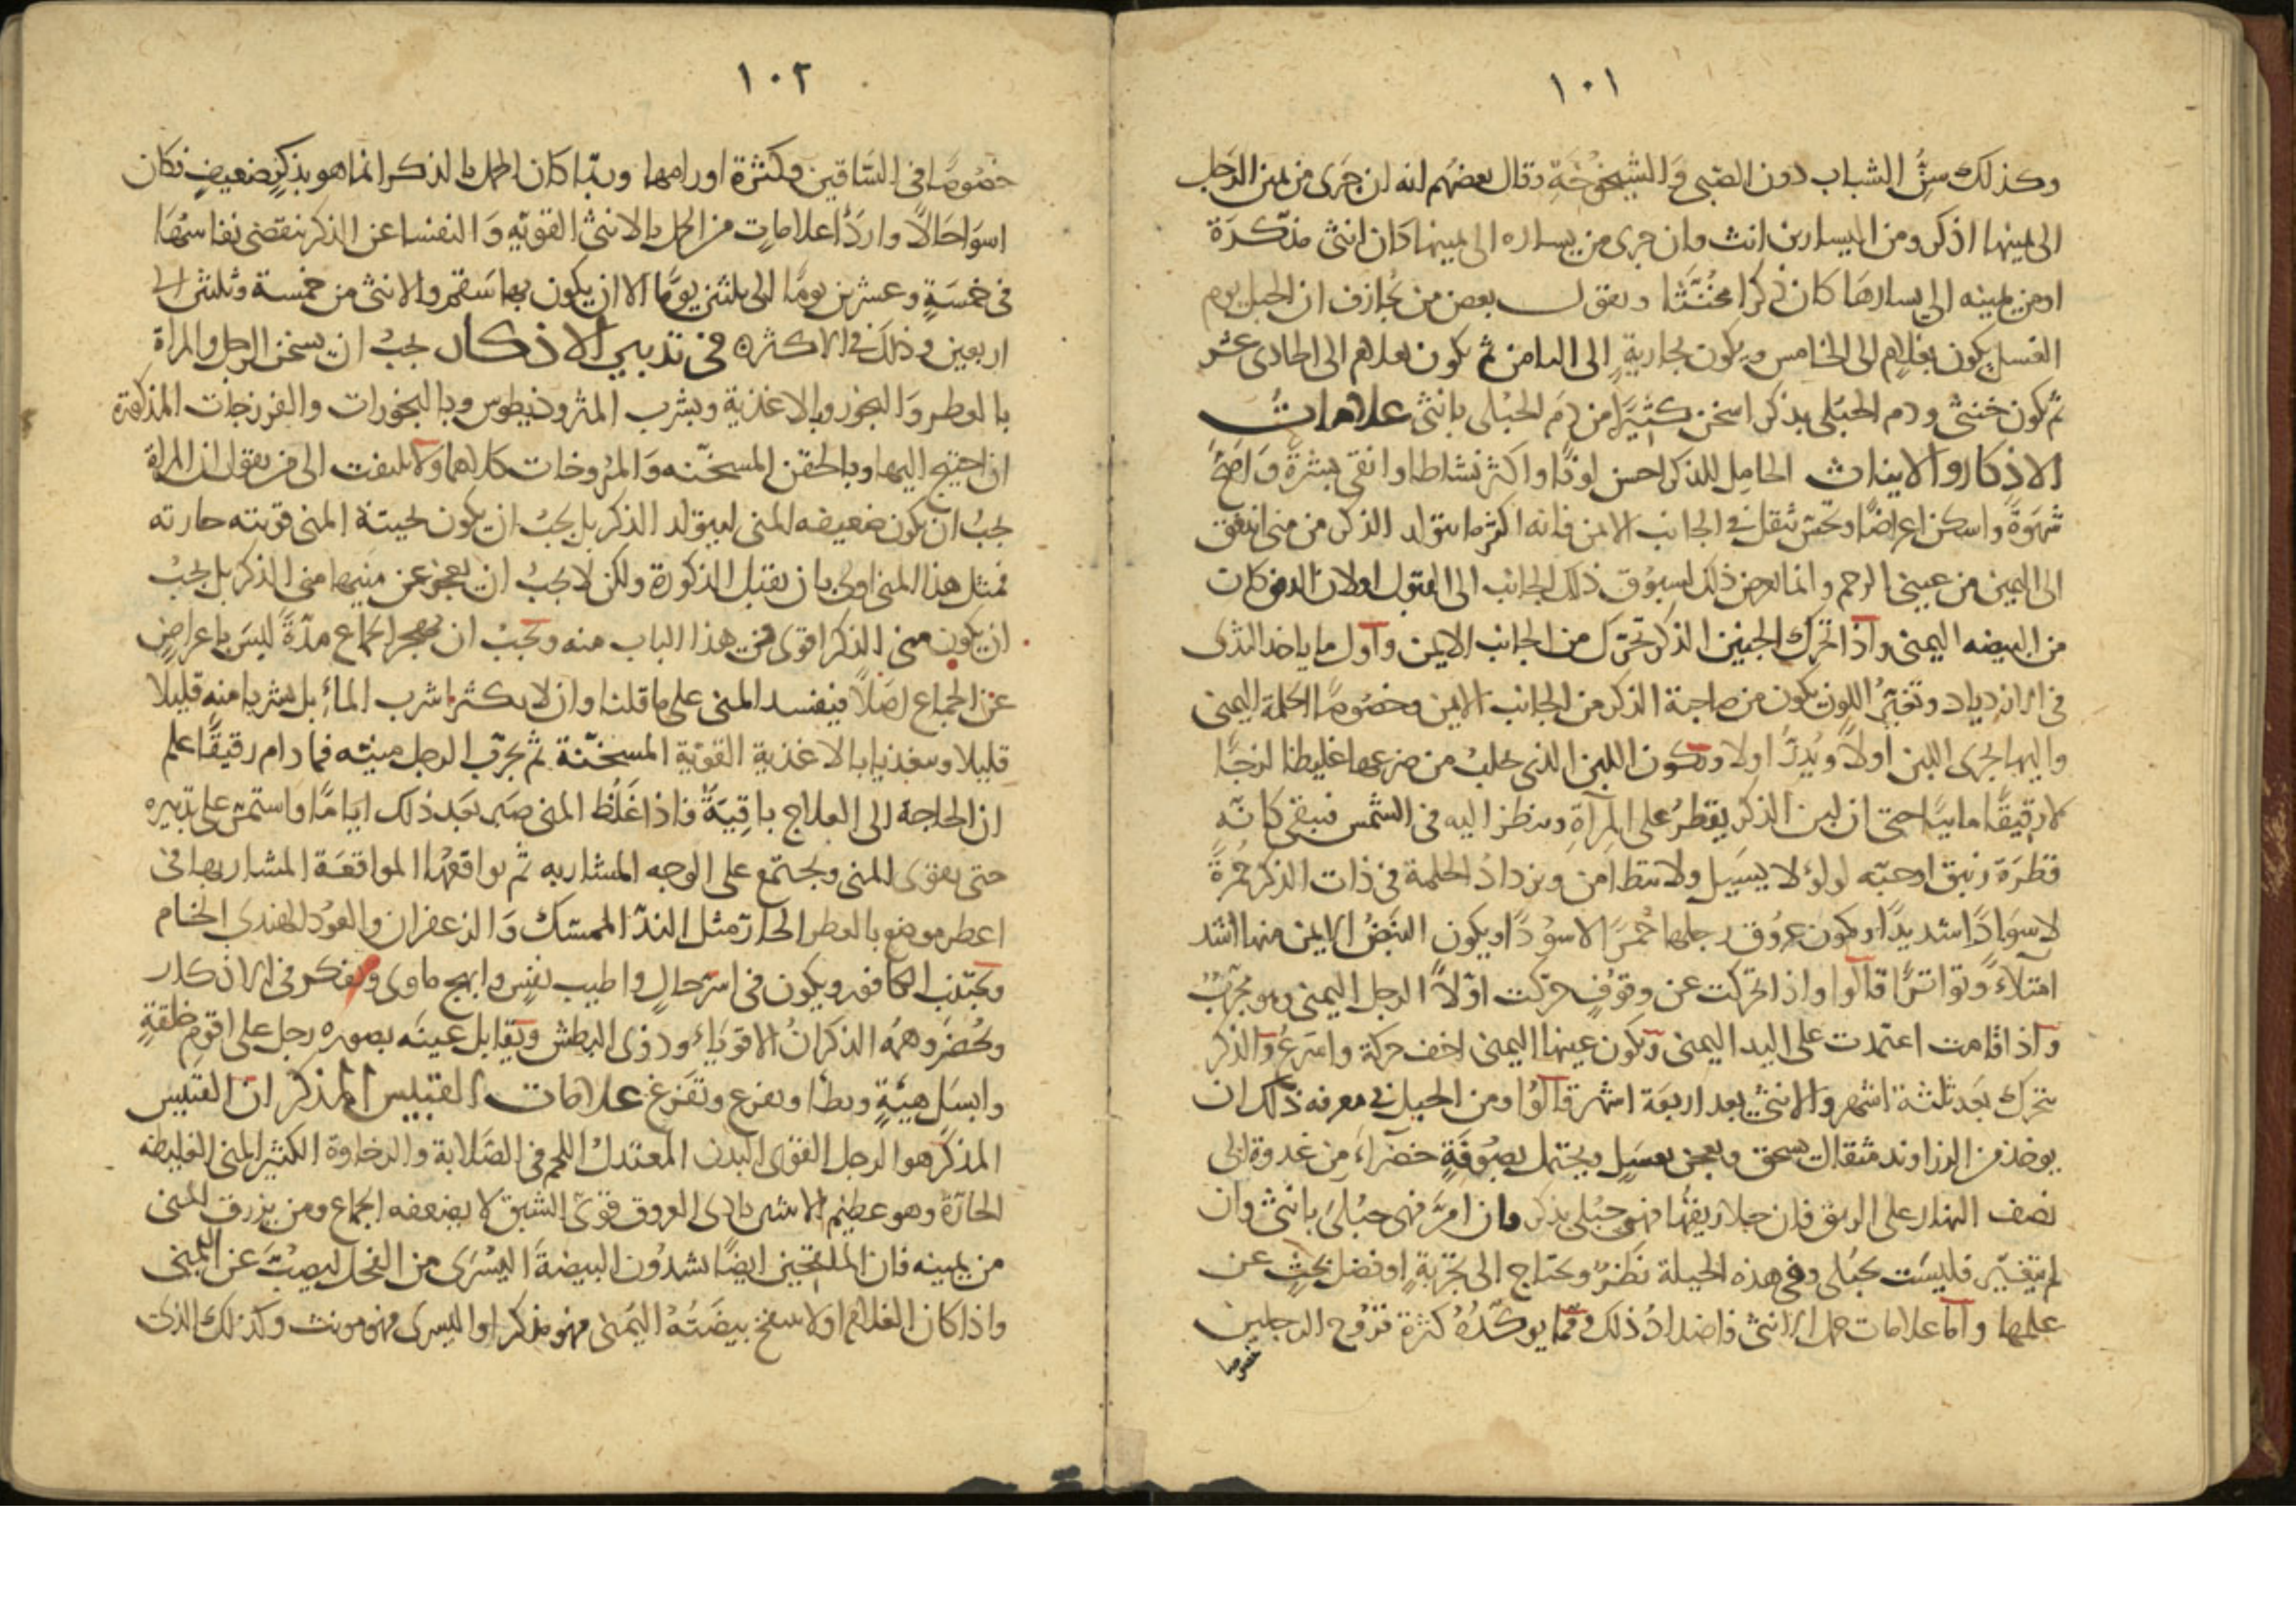 ١٠١
وكذلك سنُّ الشباب دون الصّبى وَالشيخوخة وقال بعضهم انه ان جَرى من يمين الرّجل
الى يمينها اذكر ومن اليسار انث وان جرى من يساره الى يمينها كان انثى مذكّرة
او من يمينه الى يسارهَا كان ذكرا مخنّثا ويقول بعض من يجازف ان الحبل يوم
الغسل يكون بغلام الى الخامس ويكون بجارية الى الثامن ثم يكون بغلام الى الحادى عشر
ثم يكون خنثى ودم الحبلى بذكر اسخن كثيرًا من دم الحبلى بانثى علامات
الاذكار والايناث الحامل للذكر احسن لونًا واكثر نشاطا وانقى بشرةً وَاصَحّ
شهوَةً واسكن اعراضًا وتحسّ بثقل فى الجانب الايمن فانه اكثر ما يتولد الذكر من منى اندفق
الى اليمين من عيينى الرحم وانما يعرض ذلك لسبوق ذلك الجانب الى القبول اولان الدفق كان
من البيضه اليمنى واذا تحرّك الجنين الذكر تحرّك من الجانب الايمن واول ما ياخذ الثدى
فى الازدياد وتغيّر اللون يكون من صاحبة الذكر من الجانب الايمن وخصوصًا الحلمة اليمنى
واليها يجرى اللبن اولاً ويُدرّ اولا ويكون اللبن الذى يحلب من ضرعها غليظا لزجًا
لا رقيقًا مائيًا حتى ان لبن الذكر يقطر على المرآة وينظر اليه فى الشمس فيبقى كانّه
قطرة زيبق او حبّه لولؤ لا يسيل ولا يتطامن وتزداد الحلمة فى ذات الذكر حُمرةً
لا سوَادًا شديدًا وتكون عروق رجلها حُمرًا لا سودًا ويكون النبض الايمن منها اشد
امتلاءً وتواترًا قالوا واذا تحركت عن وقوفٍ حركت اوّلاً الرجل اليمنى وهو مجرّبٌ
واذا قامت اعتمدت على اليد اليمنى وتكون عينها اليمنى اخف حركة واسرعُ والذكر
يتحرك بعد ثلثة اشهر والانثى بعد اربعة اشهر قالوا ومن الحيل فى معرفه ذلك ان
يوخذ من الزراوند مثقال يسحق ويعجن بعسل ويحتمل بصوفةٍ خضراء من غدوة الى
نصف النهار على الريق فان حلا ريقها فهى حبلى بذكر وان امرّ فهى حبلى بانثى وان
لم يتغيّر فليست بحبلى وفى هذه الحيلة نظرٌ ويحتاج الى تجربةٍ او فضل بحثٍ عن
علمها واما علامات حمل الانثى فاضدادُ ذلك ومما يوكّده كثرة قروح الرجلين
خصوصا
١٠٢
خصوصًا فى السّاقين وكثرة اورامهما وربّما كان الحمل بالذكر انما هو بذكرٍ ضعيفٍ فكان
اسوَا حَالاً واردَأ علاماتٍ من الحمل بالانثى القويّه وَالنفسا عن الذكر ينقضى نفاسُهَا
فى خمسَةٍ وعشرين يومًا الى ثلثين يومًا الا ان يكون بها سقم والانثى من خمسة وثلثين الى
اربعين وذلك فى الاكثره فى تدبير الاذكار يجبُ ان يسخن الرجل والمراة
بالعطر وَالبخور وبالاغذية وبشرب المثروذيطوس وبالبخورات والفرزجات المذكورة
ان احتيج اليها وبالحقن المسخّنه وَالمرُوخات كلاهما ولا يلتفت الى من يقول ان المراة
يجبُ ان تكون ضعيفه المنى ليتولد الذكر بل يجبُ ان يكون ثخينة المنى قويته حارته
فمثل هذا المنى اولى بان يقبل الذكورة ولكن لا يجبُ ان يعجز عن منيها منى الذكر بل يجبُ
ان يكون منى الذكر اقوى فى هذا الباب منه ويجبُ ان يهجر الجماع مدّةً ليسَ باعراضٍ
عن الجماع اصَلاً فيفسد المنى على ما قلنا وان لا يكثرا شرب الماءِ بل يشربا منه قليلا
قليلا ويتغذيا بالاغذية القويّة المسخّنة ثم يجرّب الرجل منيّه فما دام رقيقًا علم
ان الحاجة الى العلاج باقيَةٌ فاذا غَلُظ المنى صبر بعد ذلك ايامًا واستمرّ على تدبيره
حتى يقوى المنى ويجتمع على الوجه المشار به ثم يواقعهَا المواقعَة المشار بها فى
اعطر موضع بالعطر الحارّ مثل الندّ الممسّك وَالزعفران والعوُد الهندى الخام
ويجتنب الكافور ويكون فى اسَرّ حالٍ واطيب نفسٍ وابهج ماوى ويفكر فى الاذكار
ويُحضرَ وهمَهُ الذكرانُ الاقويَاءُ وذوى البطش ويقابل عينَه بصوره رجل على اقوم خلقةٍ
وابسَل هيئةٍ ويطأ ويفزع وتفرغ علامات القبيس المذكر ان القبيس
المذكر هو الرجل القوى البدن المعتدل اللحم فى الصَلابة والرخاوة الكثير المنى الغليظه
الحارّة وهو عظيم الانثيين بادى العروق قوىّ الشبق لا يضعفه الجماع ومن يزرق المنى
من يمينه فان الملقّحين ايضًا يشدُون البيضةَ اليسُرَى من الفحل ليصُبّ عن اليمنى
واذا كان الغلام اولا تنتفخ بيضتُهُ اليُمنى فهو مذكر او اليسرى فهو مونث وكذلك الذى